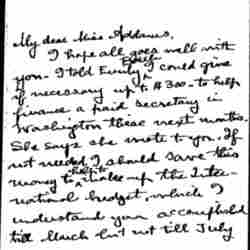 My dear Miss Addams,
I hope all goes well with
you - I told Emily Balch I could give
if necessary up to $300 - to help
finance a paid secretary in
Washington these next months.
She says she wrote to you. If
not needed, I should save this
money to help to make up the Inter-
national budget, which I
understand you accomplished
till March but not till July